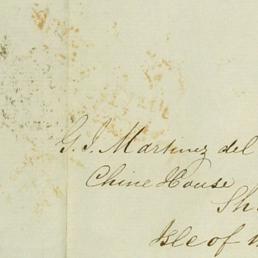 G. J. Martinez del
Chine House
Sh
Isle of W